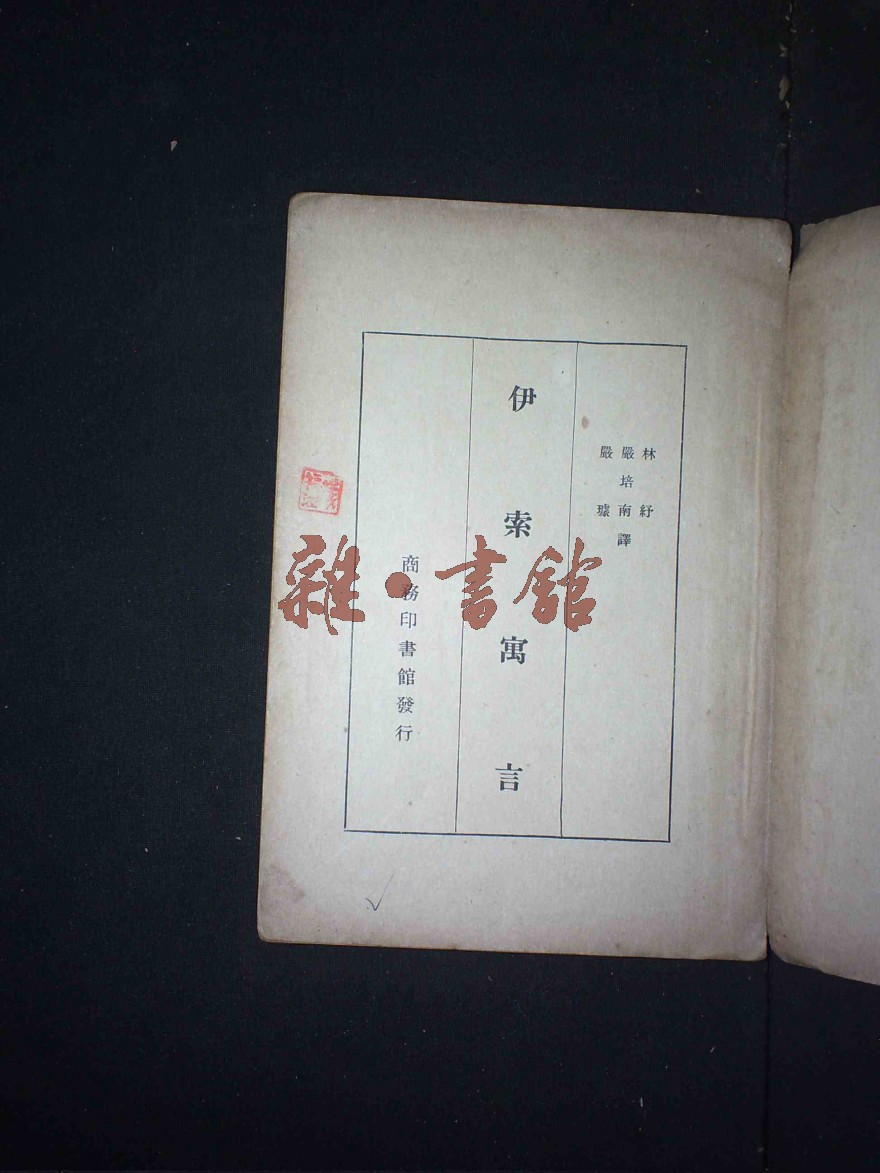 林紓
嚴培南譯
嚴璩
伊索寓言
商務印書館發行
雜·書館